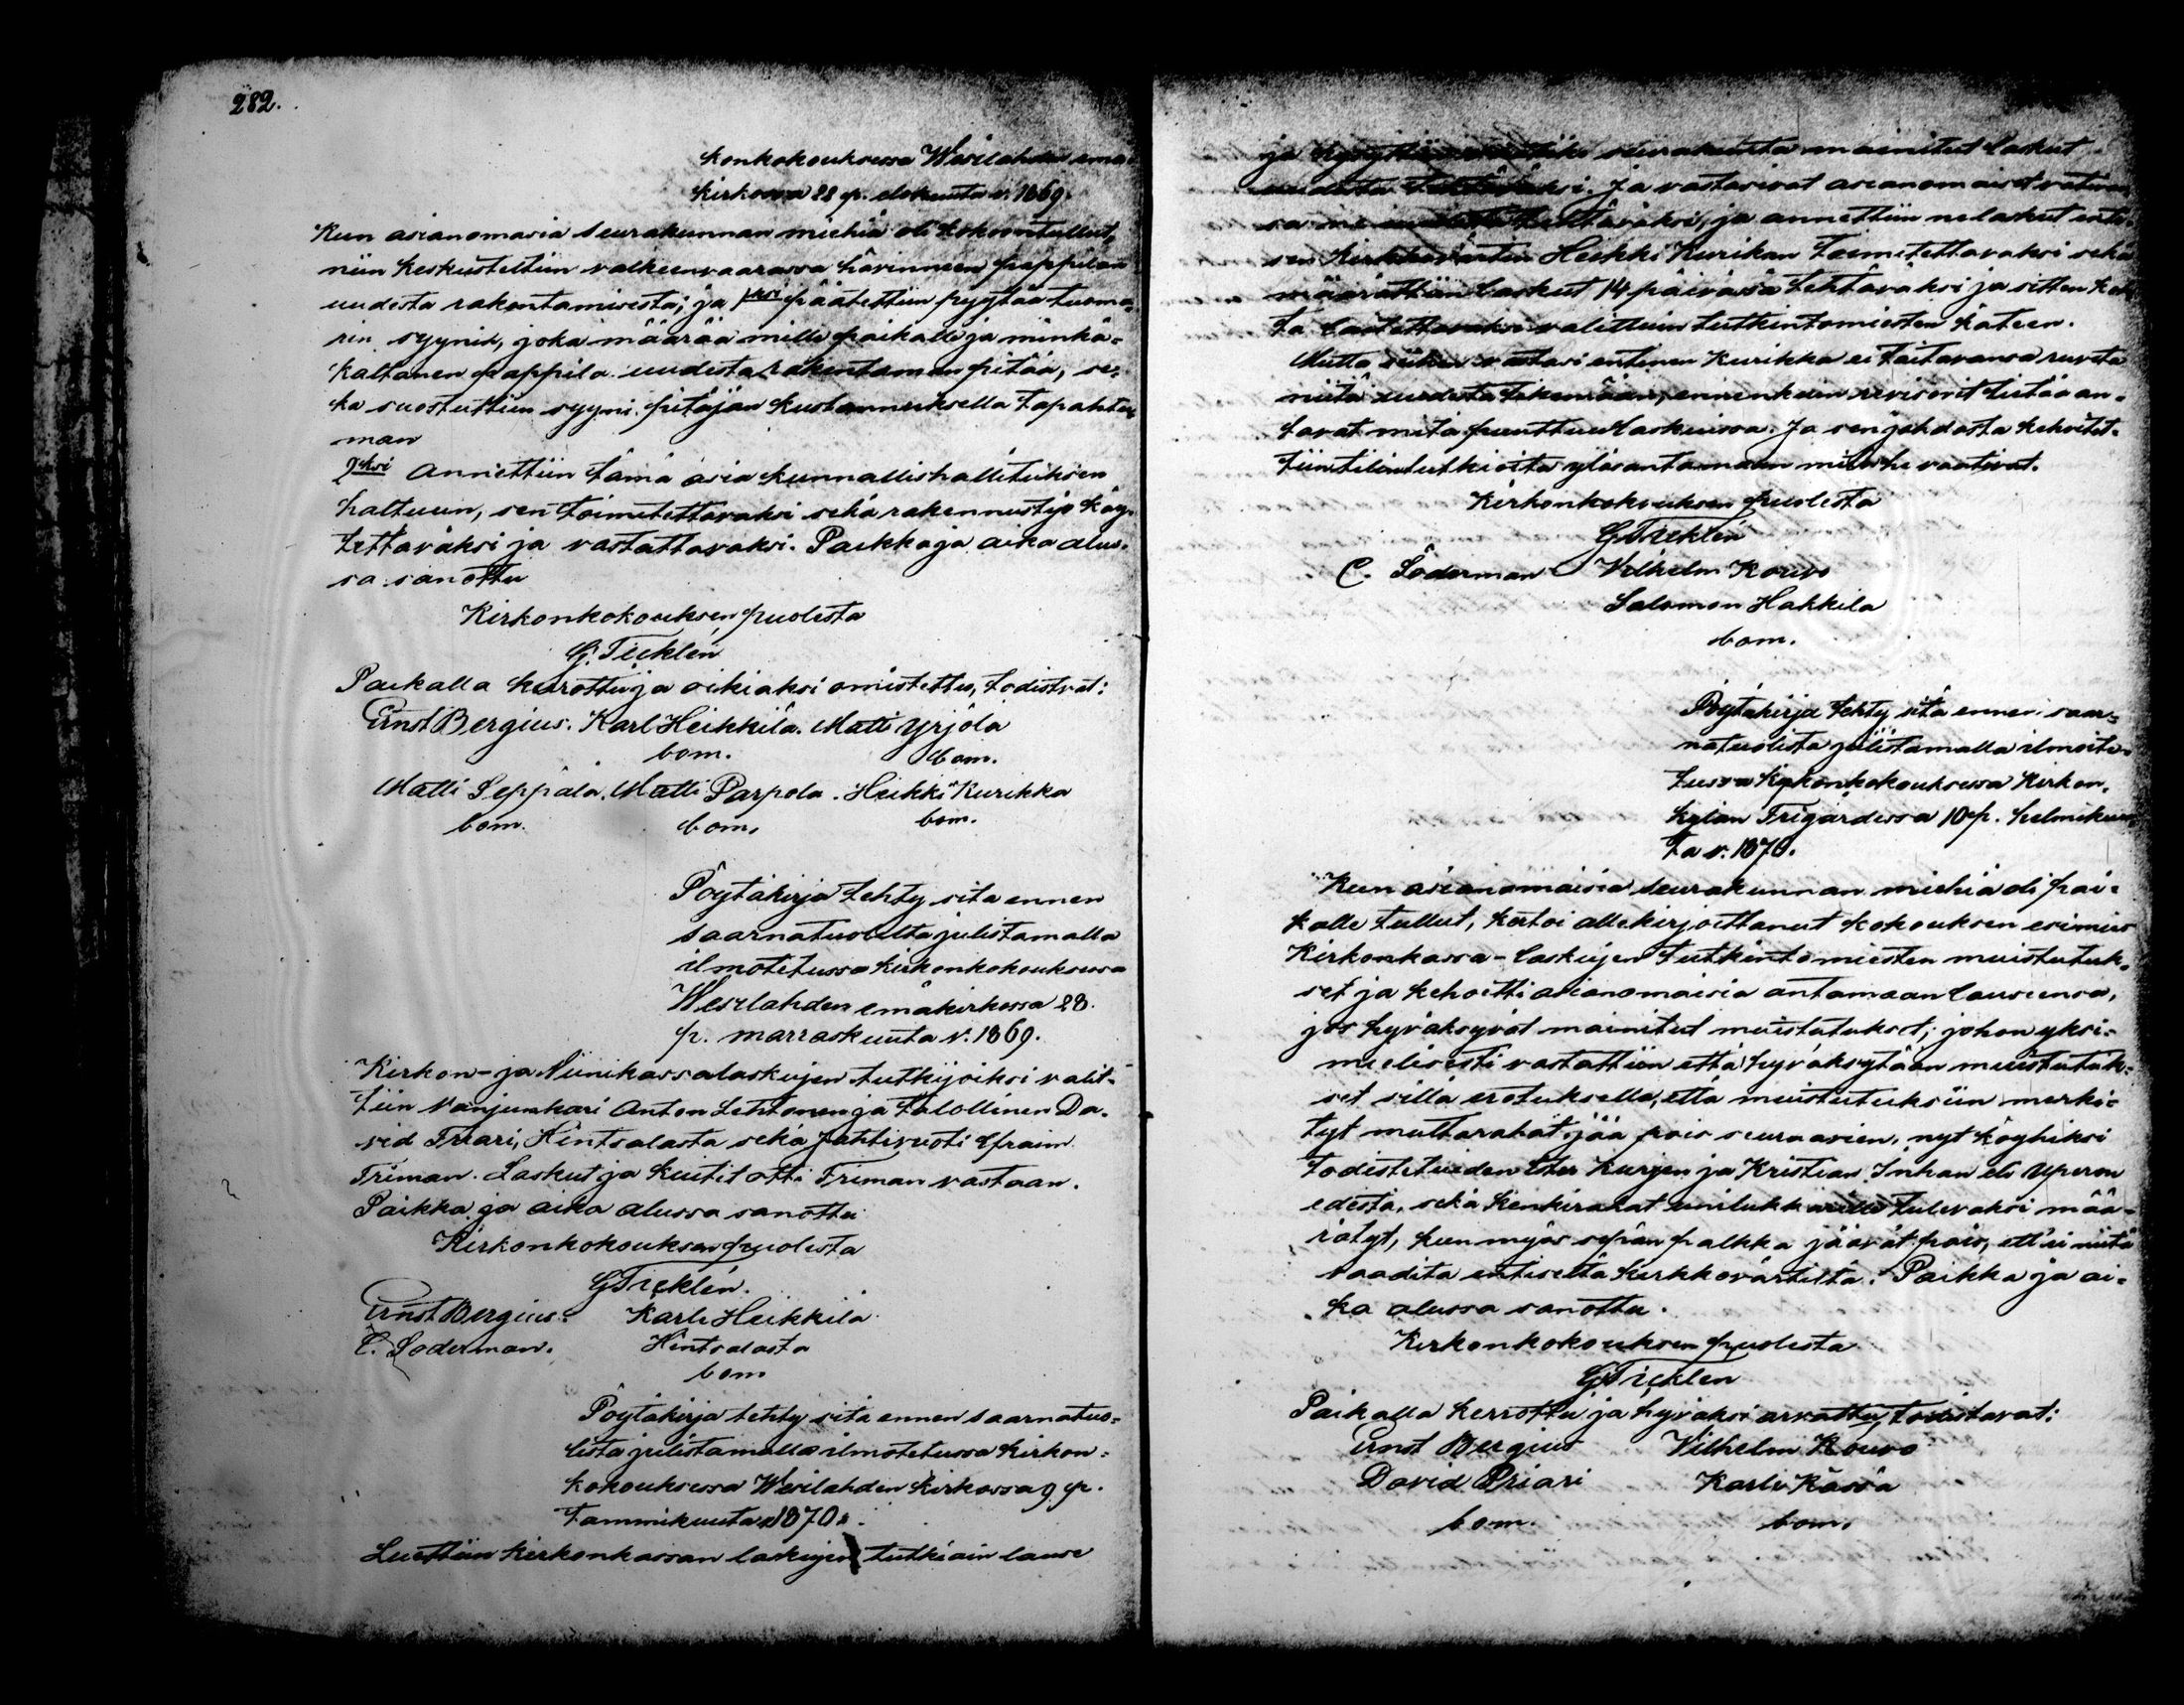 282.
konkokouksessa Wesilahden emä-
kirkossa 22 p. elokuuta v. 1869.
Kun asianomasia seurakunnan miehiä oli kokoontullut,
niin keskusteltiin valkeenvaarassa hävinneen pappilan
uudesta rakentamisesta; ja 1ksi päätettiin pyytää tuoma-
rin syyniä, joka määrää mille paikalle ja minkä-
kaltanen pappila uudesta rakentaman pitää, se-
kä suostuttiin syyni pitäjän kustannuksella tapahtu-
man
2ksi Annettiin tämä asia kunnallishallituksen
haltuun, sen toimitettavaksi sekä rakennustyö käy-
tettäväksi ja vastattavaksi. Paikka ja aika alus-
sa sanottu
Kirkonkokouksen puolesta
G. Ticklén
Paikalla kerottu ja oikiaksi omistettu, todistvat:
Ernst Bergius. Karl Heikkilä. Matti Yrjölä
bom. bom.
Matti Seppälä. Matti Parpola. Heikki Kurikka
bom. bom. bom.
Pöytäkirja tehty sitä ennen
saarnatuolilta julistamalla
ilmotetussa kirkonkokouksessa
Wesilahden emäkirkossa 28.
p. marraskuuta v. 1869.
Kirkon- ja Viinikassalaskujen tutkijoiksi valit-
tiin Vanjunkari Anton Lehtonen ja talollinen Da-
vid Friari, Hintsalasta sekä Jahtivuoti Efraim
Friman. Laskut ja kuitit otti Friman vastaan.
Paikka ja aika alussa sanottu
Kirkonkokouksen puolesta
G Ticklén.
Ernst Bergius. Karle Heikkilä
C. Soderman. Hintsalasta
bom
Pöytäkirja tehty sitä ennen saarnatuo-
lista julistamalla ilmotetussa kirkon-
kokouksessa Wesilahden kirkossa 9 p.
tammikuuta 1870.
Luettiin kirkonkassan laskujen tutkiain lause
ja seurakunta mainitut laskut
uudesta tehtäväksi. Ja vastasivat asianomaiset
ja annettiin ne laskut enti-
sen kirkkovärtin Heikki Kurikan toimitettavaksi sekä
määrättiin laskut 14 päivässä tehtäväksi ja sitten
valittuin tutkintomiesten käteen.
Mutta siihen vastasi entinen Kurikka ei taitavansa ruveta
niitä uudesta tekemään, ennenkuin revisorit tietää an-
tavat mitä puuttuu laskuissa. Ja sen johdosta kehoitet-
tiin tilintutkioita ylösantamaan mitä he vaativat.
Kirkonkokouksen puolesta
G Ticklén
C. Söderman Vilhelm Kouvo
Salomon Hakkila
bom.
Pöytäkirja tehty sitä ennen saar-
natuolista julistamalla ilmoite-
tussa kirkonkokouksessa Kirkon-
kylän Frigårdissa 10 p. helmikuu-
ta v. 1870.
Kun asianomaisia seurakunnan miehiä oli pai-
kalle tullut, kertoi allekirjoittanut kokouksen esimies
Kirkonkassa-laskujen tutkintomiesten muistutuk-
set ja kehoitti asianomaisia antamaan lauseensa,
jos hyväksyvät mainitut muistutukset; johon yksi-
mielisesti vastattiin että hyväksytään muistutuk-
set sillä erotuksella, että muistutuksiin merki-
tyt multarahat jää pois seuraavien, nyt köyhiksi
todistetuiden Kurjen ja Kristian Inhan eli Uperon
edestä, sekä kenkirahat tulevaksi mää-
rätyt, kun myös sepän palkka jäävät pois, ett'ei niitä
vaadita entiseltä kirkkovärtiltä. Paikka ja ai-
ka alussa sanottu.
Kirkonkokouksen puolesta
G Ticklen
Paikalla kerrottu ja hyväksi arvattu, todistavat:
Ernst Bergius Vilhelm Kouvo
David Priari Karle Kässä
bom. bom.